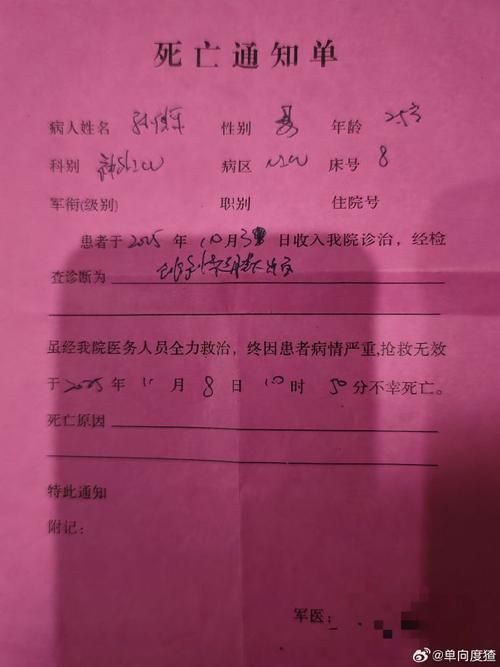 死亡通知单
病人姓名 性别 男 年龄 25岁
科别 神外ICU 病区 NICU 床号 8
军衔(级别) 职别 住院号
患者于2025年10月3日收入我院诊治，经检
查诊断为
虽经我院医务人员全力救治，终因患者病情严重,抢救无效
于2025年11月8日10时50分不幸死亡。
死亡原因
特此通知
附记：
军医：
@单向度猹